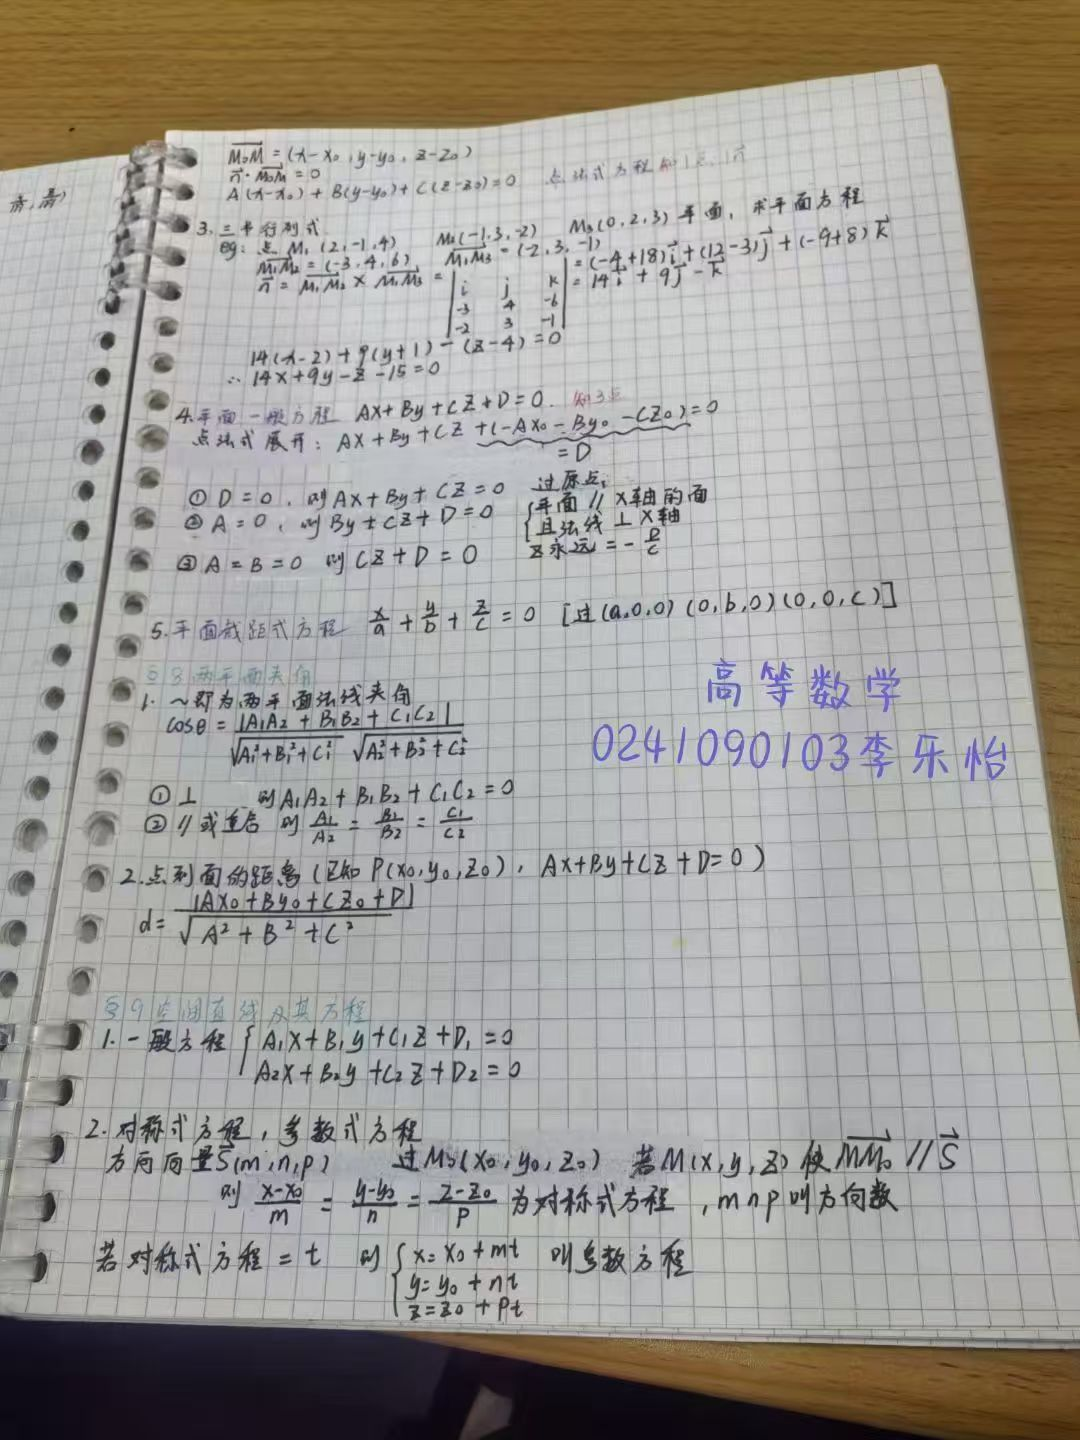 M₀M = (x-x₀, y-y₀, z-z₀)
n·M₀M = 0
A(x-x₀) + B(y-y₀) + C(z-z₀) = 0 点法式方程
3. 三阶行列式
eg: 点 M₁(2,-1,4) M₂(-1,3,-2) M₃(0,2,3) 平面, 求平面方程
M₁M₂ = (-3,4,6) M₁M₃ = (-2,3,-1)
n = M₁M₂ × M₁M₃ = | i j k | = (-4+18)i + (12-3)j + (-9+8)k
-3 4 -6 = 14i + 9j - k
-2 3 -1
14(x-2) + 9(y+1) - (z-4) = 0
∴ 14x+9y-z-15=0
4. 平面一般方程 Ax+By+Cz+D=0. 知3点
点法式展开: Ax+By+Cz+(-Ax₀-By₀-Cz₀)=0
=D
① D=0, 则 Ax+By+Cz=0 过原点;
② A=0, 则 By+Cz+D=0 {平面 // x轴的面
且法线 ⊥ x轴
③ A=B=0 则 Cz+D=0 z永远=-D/C
5. 平面截距式方程 x/a + y/b + z/c = 0 [过(a,0,0)(0,b,0)(0,0,c)]
§8 两平面夹角
1. ~即为两平面法线夹角
cosθ = |A₁A₂+B₁B₂+C₁C₂| / √A₁²+B₁²+C₁² √A₂²+B₂²+C₂²
① ⊥ 则 A₁A₂+B₁B₂+C₁C₂=0
② // 或重合 则 A₁/A₂ = B₁/B₂ = C₁/C₂
高等数学
0241090103李乐怡
2. 点到面的距离(已知 P(x₀,y₀,z₀), Ax+By+Cz+D=0)
d = |Ax₀+By₀+Cz₀+D| / √A²+B²+C²
§9 空间直线及其方程
1. 一般方程 { A₁x+B₁y+C₁z+D₁=0
A₂x+B₂y+C₂z+D₂=0
2. 对称式方程, 参数式方程
方向向量S(m,n,p) 过M₀(x₀,y₀,z₀) 若M(x,y,z)使MM₀ // S
则 x-x₀/m = y-y₀/n = z-z₀/p 为对称式方程, m n p 叫方向数
若对称式方程 = t 则 { x=x₀+mt 叫参数方程
y=y₀+nt
z=z₀+pt